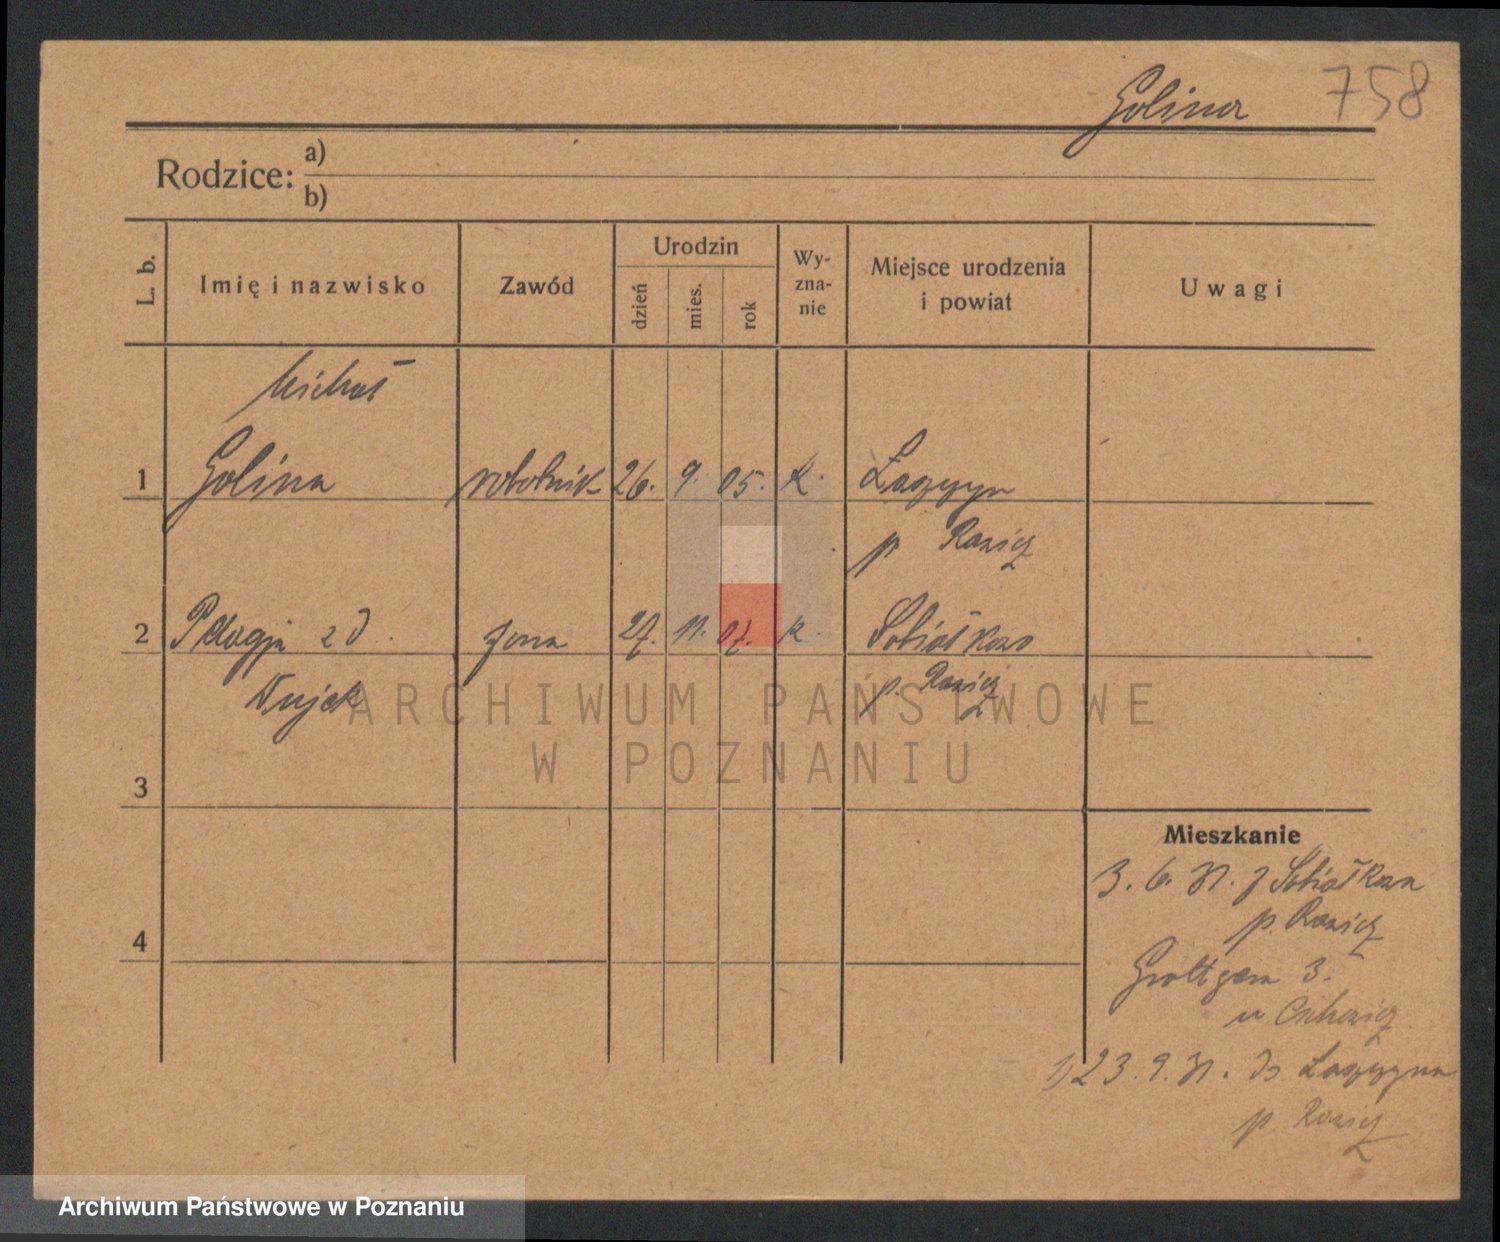 Golina 758
Rodzice: a)
b)
L. b. Imię i nazwisko Zawód Urodzin dzień mies. rok Wy-zna-nie Miejsce urodzenia i powiat Uwagi
Michał
1 Golina robotnik 26. 9. 05. k. Łaszczyn
p Rawicz
2 Pelagja z d. żona 27. 11. 07. k. Sobiałkowo
Wujek p. Rawicz
ARCHIWUM PAŃSTWOWE
W POZNANIU
3
Mieszkanie
3. 6. 31. z Sobiałkowa
p. Rawicz
4
Grottgera 3.
u
1) 23. 9. 31. do Łaszczyna
p. Rawicz
Archiwum Państwowe w Poznaniu